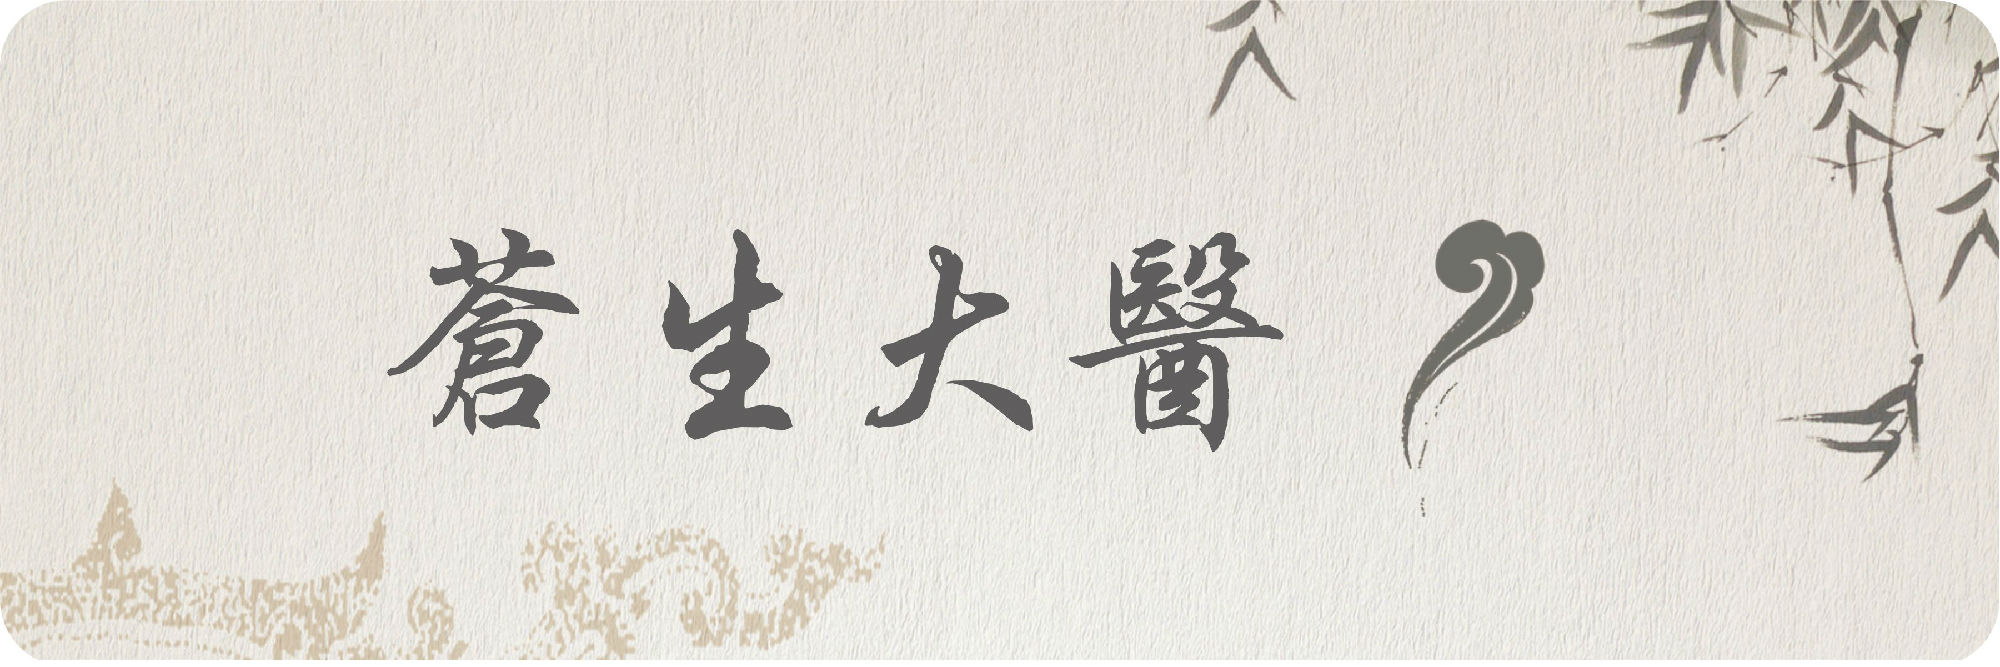 蒼生大醫